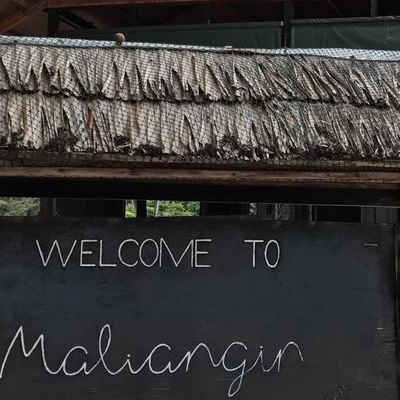 WELCOME TO
Maliangin